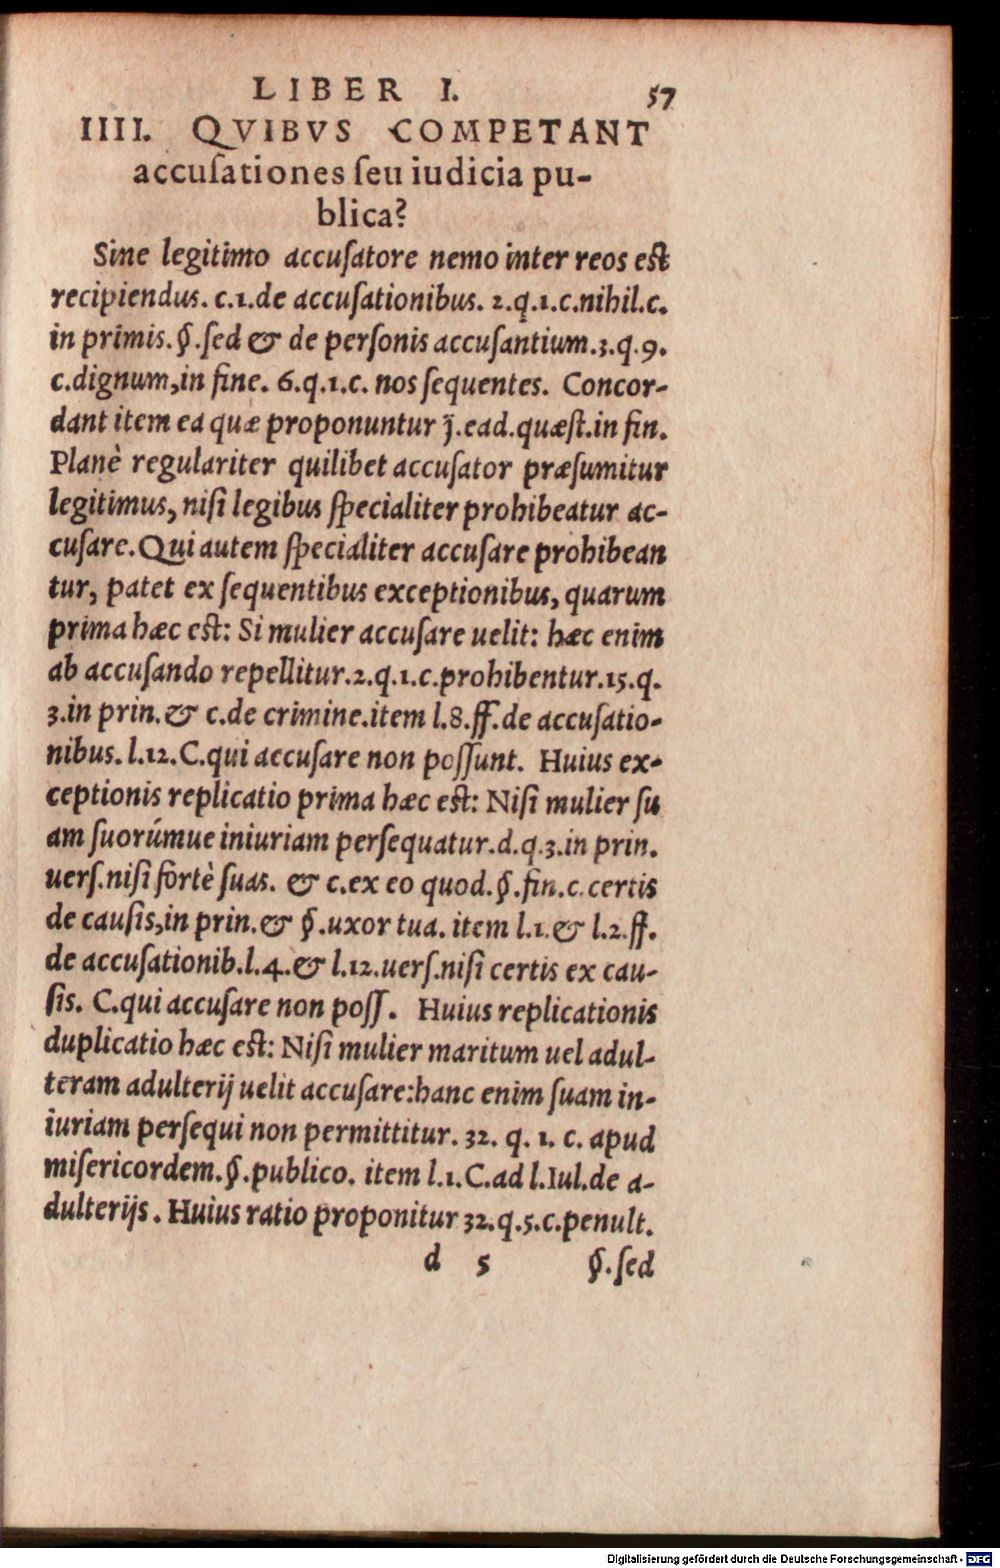 LIBER I. 57
IIII. QVIBVS COMPETANT
accuſationes ſeu iudicia pu-
blica?
Sine legitimo accuſatore nemo inter reos eſt
recipiendus. c.1.de accuſationibus. 2.q.1.c.nihil.c.
in primis.§.ſed & de perſonis accuſantium.3.q.9.
c.dignum,in fine. 6.q.1.c. nos ſequentes. Concor-
dant item ea quæ proponuntur j.ead.quæſt.in fin.
Planè regulariter quilibet accuſator præſumitur
legitimus, niſi legibus ſpecialiter prohibeatur ac-
cuſare.Qui autem ſpecialiter accuſare prohibean
tur, patet ex ſequentibus exceptionibus, quarum
prima hæc eſt: Si mulier accuſare uelit: hæc enim
ab accuſando repellitur.2.q.1.c.prohibentur.15.q.
3.in prin.& c.de crimine.item l.8.ff.de accuſatio-
nibus.l.12.C.qui accuſare non poſſunt. Huius ex-
ceptionis replicatio prima hæc eſt: Niſi mulier ſu
am ſuorúmue iniuriam perſequatur.d.q.3.in prin.
uerſ.niſi fortè ſuas. & c.ex eo quod.§.fin.c.certis
de cauſis,in prin.& §.uxor tua. item l.1.& l.2.ff.
de accuſationib.l.4.& l.12.uerſ.niſi certis ex cau-
ſis. C.qui accuſare non poſſ. Huius replicationis
duplicatio hæc eſt: Niſi mulier maritum uel adul-
teram adulterij uelit accuſare:hanc enim ſuam in-
iuriam perſequi non permittitur. 32. q. 1. c. apud
miſericordem.§.publico. item l.1.C.ad l.Iul.de a-
dulterijs. Huius ratio proponitur 32.q.5.c.penult.
d 5 §.ſed
Digitalisierung gefördert durch die Deutsche Forschungsgemeinschaft - DFG